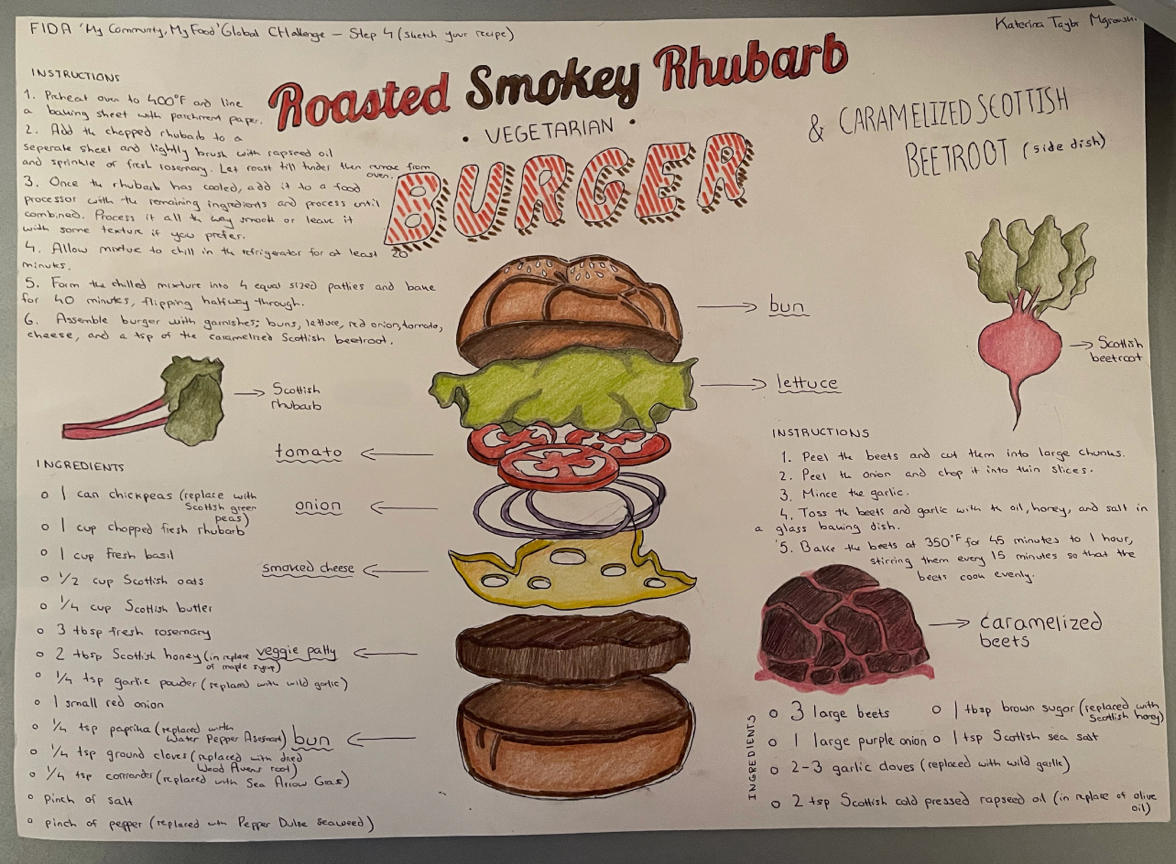 FIDA 'My Community, My Food' Global Challenge – Step 4 (sketch your recipe)
Katerina Taylor
Roasted Smokey Rhubarb
• VEGETARIAN •
BURGER
& CARAMELIZED SCOTTISH
BEETROOT (side dish)
INSTRUCTIONS
1. Preheat oven to 400°F and line
a baking sheet with parchment paper.
2. Add the chopped rhubarb to a
seperate sheet and lightly brush with rapseed oil
and sprinkle of fresh rosemary. Let roast till tender then remove from
oven.
3. Once the rhubarb has cooled, add it to a food
processor with the remaining ingredients and process until
combined. Process it all the way smooth or leave it
with some texture if you prefer.
4. Allow mixture to chill in the refrigerator for at least 20
minutes.
5. Form the chilled mixture into 4 equal sized patties and bake
for 40 minutes, flipping halfway through.
6. Assemble burger with garnishes; buns, lettuce, red onion, tomato,
cheese, and a tsp of the caramelized Scottish beetroot.
Scottish
rhubarb
bun
lettuce
tomato
onion
smoked cheese
veggie patty
bun
INGREDIENTS
1 can chickpeas (replace with
Scottish green
peas)
1 cup chopped fresh rhubarb
1 cup fresh basil
1/2 cup Scottish oats
1/4 cup Scottish butter
3 tbsp fresh rosemary
2 tbsp Scottish honey (in replace
of maple syrup)
1/4 tsp garlic powder (replaced with wild garlic)
1 small red onion
1/4 tsp paprika (replaced with
Water Pepper
1/4 tsp ground cloves (replaced with dried
Wood Avens root)
1/4 tsp corriander (replaced with Sea Arrow Grass)
pinch of salt
pinch of pepper (replaced with Pepper Dulse Seaweed)
Scottish
beetroot
INSTRUCTIONS
1. Peel the beets and cut them into large chunks.
2. Peel the onion and chop it into thin slices.
3. Mince the garlic.
4. Toss the beets and garlic with the oil, honey, and salt in
a glass baking dish.
5. Bake the beets at 350°F for 45 minutes to 1 hour,
stirring them every 15 minutes so that the
beets cook evenly.
caramelized
beets
INGREDIENTS
3 large beets
1 large purple onion
2-3 garlic cloves (replaced with wild garlic)
2 tsp Scottish cold pressed rapseed oil (in replace of olive
oil)
1 tbsp brown sugar (replaced with
Scottish honey)
1 tsp Scottish sea salt